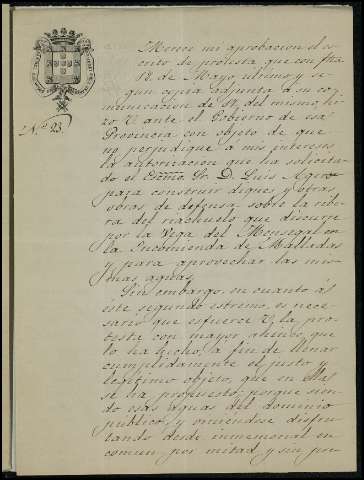 Merece mi aprobacion el es-
crito de protesta que con fha
18 de Mayo último y se-
gun copia adjunta á su co-
municacion de 21, del mismo, hi-
zo V. ante el Gobierno de esa
Nº 23.
Provincia con objeto de que
no perjudique á mis intereses
la autorizacion que ha solicita-
do el Excmo Sr. D. Luis
para construir diques y otras
obras de defensa sobre la ribe-
ra del riachuelo que discurre
por la Vega del
la Encomienda de Malladas
y para aprovechar las mis-
mas aguas.
Sin embargo, en cuanto á
este segundo estremo, es nece-
sario que esfuerce V. la pro-
testa con mayor ahinco, que
lo ha hecho, a fin de llenar
cumplidamente el justo y
legítimo objeto, que en ella
se ha propuesto; porque sien-
do esas aguas del dominio
público, y viniéndose disfru-
tando desde inmemorial en
comun, por mitad y sin per-